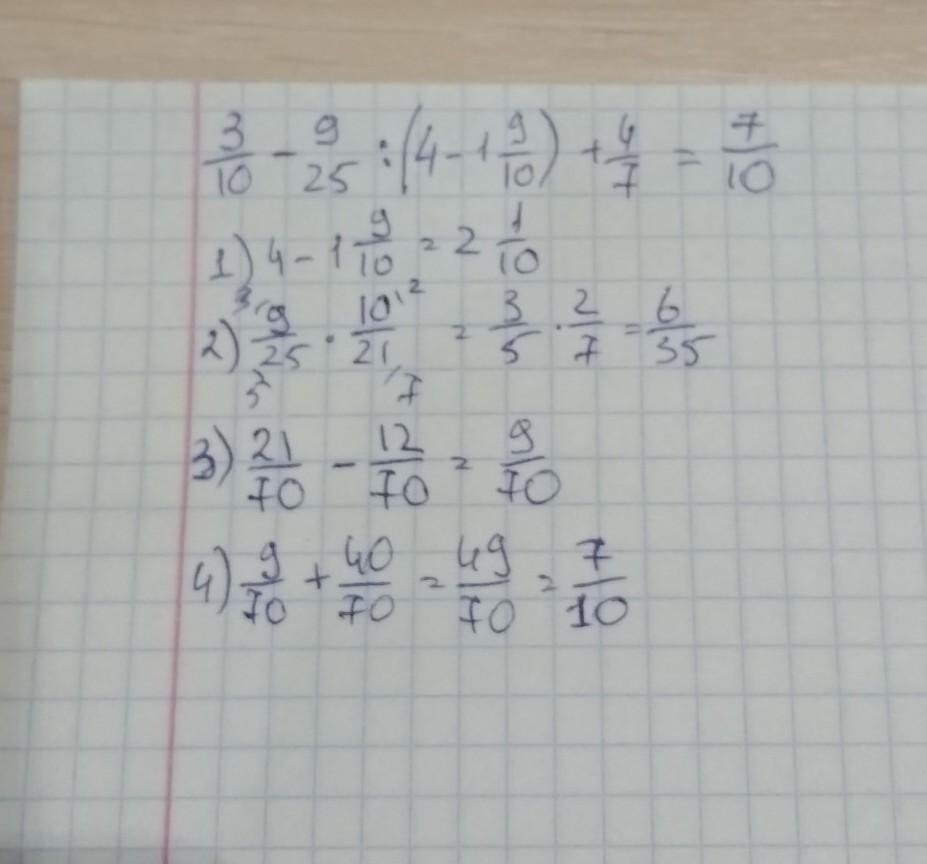 3/10 - 9/25 : (4 - 1 9/10) + 4/7 = 7/10
1) 4 - 1 9/10 = 2 1/10
2) 3 9/25 5 · 10 2/21 7 = 3/5 · 2/7 = 6/35
3) 21/70 - 12/70 = 9/70
4) 9/70 + 40/70 = 49/70 = 7/10